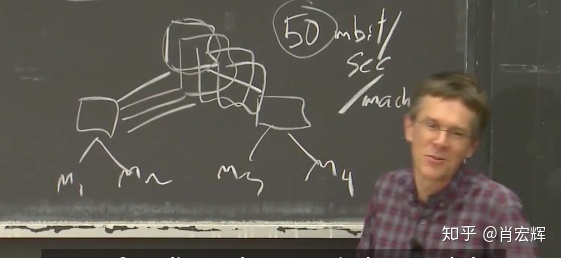 50 mbit/
sec
/mach
M1 M2 M3 M4
知乎 @肖宏辉